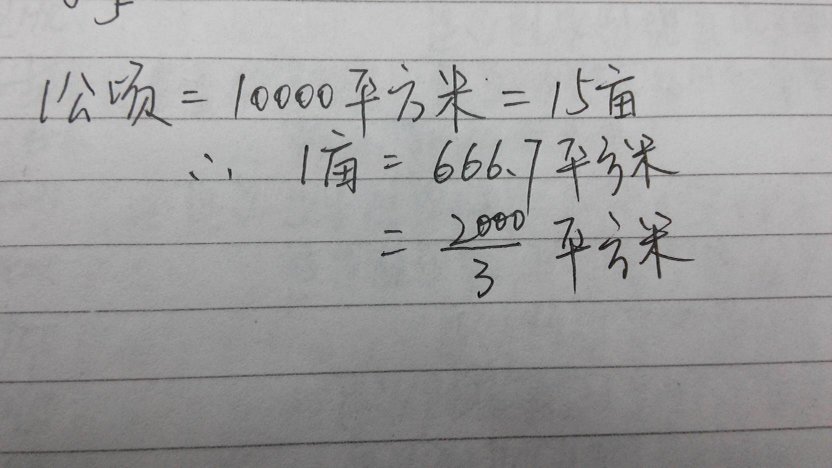 1公顷=10000平方米=15亩
∴ 1亩=666.7平方米
=2000/3 平方米